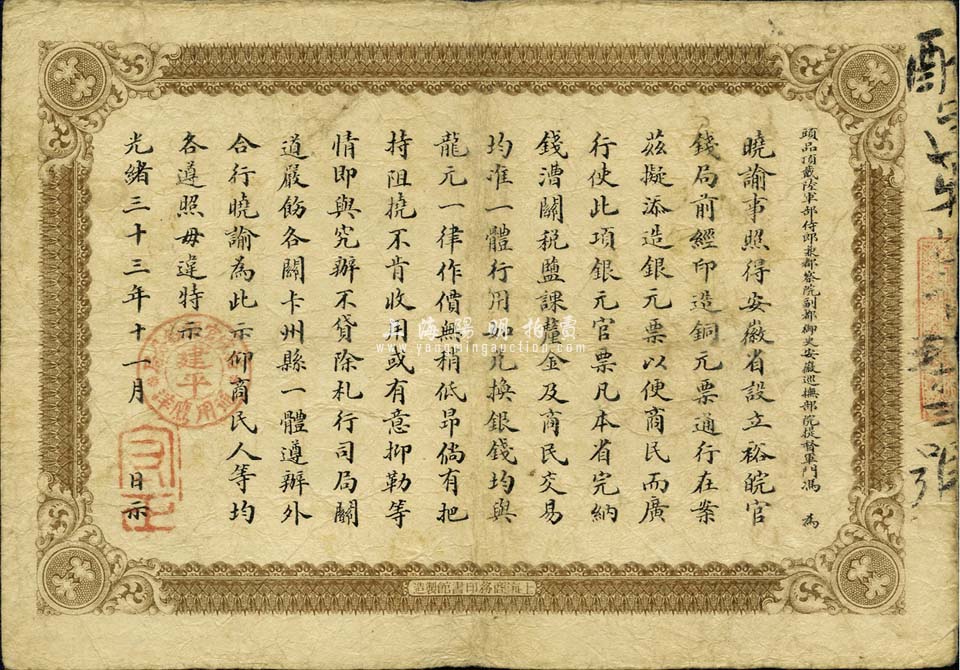 頭品頂戴陸軍部侍郎兼都察院副都御史安徽巡撫部院提督軍門馮 為
曉諭事照得安徽省設立裕皖官
錢局前經印造銅元票通行在案
茲擬添造銀元票以便商民而廣
行使此項銀元官票凡本省完納
錢漕關稅鹽課釐金及商民交易
均准一體行用如兌換銀錢均與
龍元一律作價無稍低昂倘有把
持阻撓不肯收用或有意抑勒等
情即與究辦不貸除札行司局關
道嚴飭各關卡州縣一體遵辦外
合行曉諭為此示仰商民人等均
各遵照毋違特示
光緒三十三年十一月 日示
建平
通用龍洋
上海商務印書館製造
上海陽明拍賣
www.yangmingauction.com